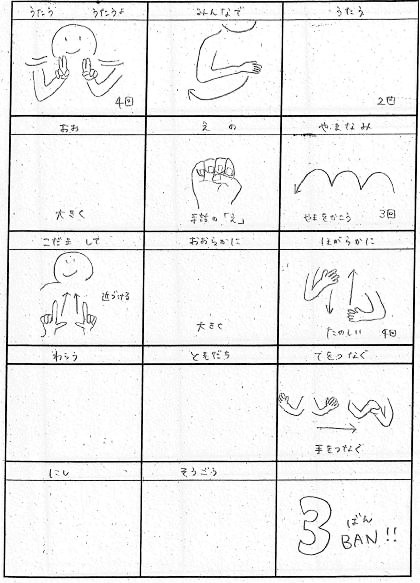 うたう うたうよ
みんなで
うたう
4回
2回
おお
えの
やまなみ
大きく
手話の「え」
やまをかこう 3回
こだま して
おおらかに
ほがらかに
近づける
大きく
たのしい 4回
わらう
ともだち
てをつなぐ
手をつなぐ
にし
そうごう
3ばん
BAN!!